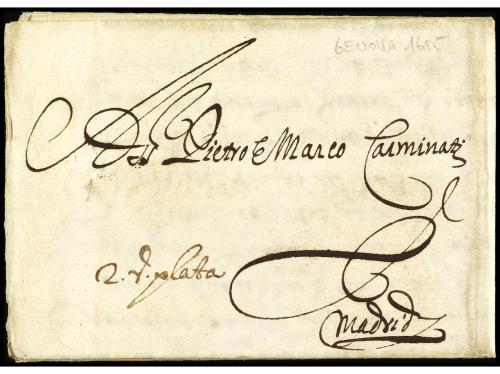 GENOVA 1655
A SS.ri Pietro e Marco Carminati
2. r. plata
Madrid